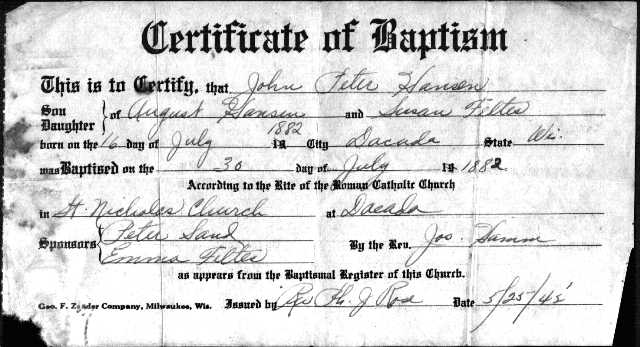 Certificate of Baptism
This is to Certify, that John Peter Hansen
Son
Daughter } of August Hansen and Susan Feltes
born on the 16 day of July 1882 18 City Dacada State Wi.
was Baptised on the 30 day of July 18 1882
According to the Rite of the Roman Catholic Church
in St. Nicholas Church at Dacada
Sponsors { Peter Sand
Emma Feltes
By the Rev. Jos. Hamm
as appears from the Baptismal Register of this Church.
Geo. F. Zander Company, Milwaukee, Wis. Issued by Rev J Rose Date 5/25/45